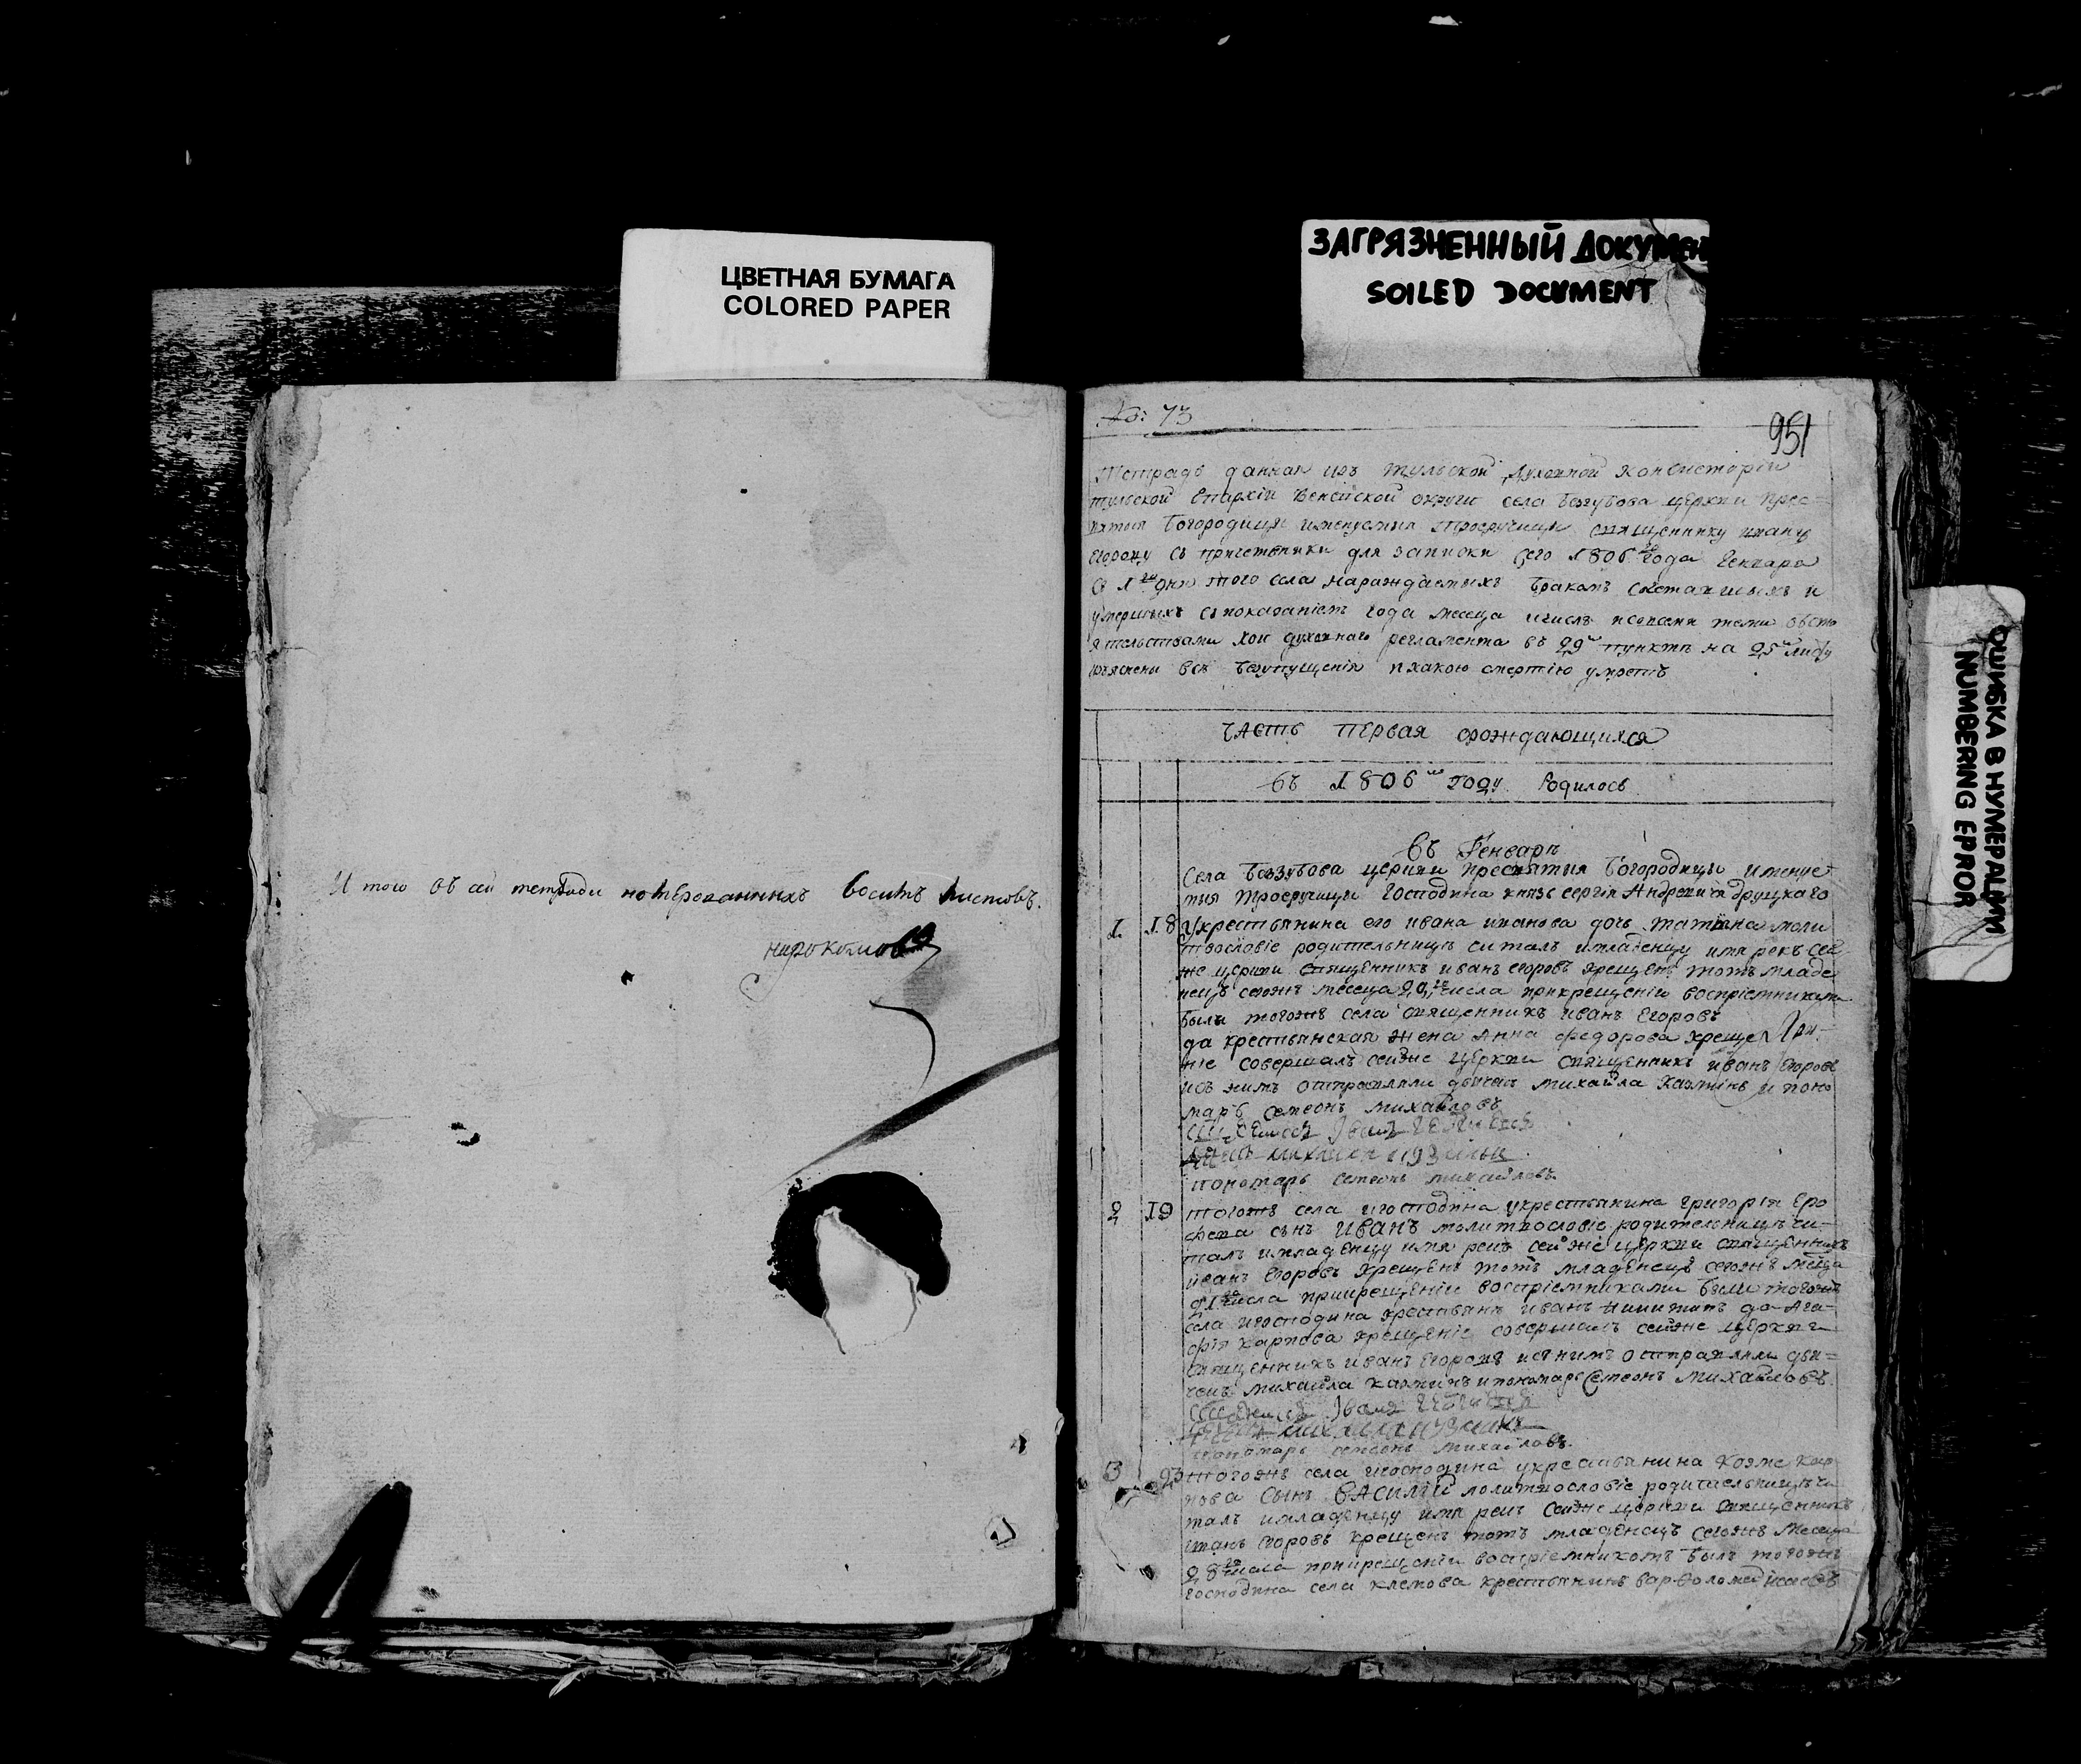 ЦВЕТНАЯ БУМАГА
COLORED PAPER
ЗАГРЯЗНЕННЫЙ ДОКУМЕН
SOILED DOCUMENT
ОШИБКА В НУМЕРАЦИИ
NUMBERING ЕРROR
И того въ сей тетради нотерованныхъ восимъ листовъ.
№: 73
951
Тетрадь данная изъ тульской духовной консисторіи
тульской Епархіи Венсвской округи села Беззубова церкви Прес=
вятыя Богородицы именуемыя троеручицы священнику ивану
Егорову съ причетники для записки сего 1806го года Генваря
съ 1го дня того села нараждаемыхъ бракомъ сочетаныхъ и
умершыхъ съ показаніемъ года месеца и числъ и со всеми теми обсто
ятельствами кои духовнаго регламента въ 29м пункте на 25м листу
изъяснены все безупущенія и какою смертію умретъ
ЧАСТЬ ПЕРВАЯ орождающихся
Въ 1806м году Родилось
Въ Генваре
Села Беззубова церкви пресвятыя Богородицы именуе
мыя троеручицы Господина князь сергія Андреевича друцкаго
1. 18 Укрестьянина его ивана иванова дочь татияна моли
твословіе родительнице читалъ имладенцу имя рекъ сей
же церкви священникъ иванъ егоровъ крещенъ тотъ младе
нецъ сегожъ месеца 20го числа прикрещеніи воспріемниками
были тогожъ села священникъ иванъ Егоровъ
да крестьянская жена Анна федорова креще
ніе совершалъ сейже церкви священникъ иванъ Егоровъ
исъ нимъ отправляли дьячекъ михайла Казминъ и поно
марь семеонъ михайловъ
пономарь семеонъ михайловъ
2 19 тогожъ села игосподина укрестьянина григорія Еро
феева сынъ ИВАНЪ молитвословіе родительнице чи-
талъ имладенцу имя рекъ сейже церкви священникъ
иванъ Егоровъ крещенъ тотъ младенецъ сегожъ месеца
21го числа прикрещеніи воспріемниками были тогожъ
села игосподина крестьянъ иванъ никитинъ да Ага-
фія карпова крещеніе совершалъ сейже церкви
священникъ иванъ Егоровъ исънимъ отправляли дья=
чекъ михайла казминъ ипономарь Семеонъ михайловъ
пономарь семеонъ михайловъ.
3 23 тогожъ села игосподина укрестьянина Козме Кар
пова Сынъ ВАСИЛІЙ молитвословіе родительнице чи
талъ имладенцу имя рекъ сейже церкви священникъ
иванъ егоровъ крещенъ тотъ младенецъ сегожъ месеца
28го числа прикрещеніи воспріемникомъ былъ тогожъ
господина села клемова крестьянинъ варфоломей исаевъ